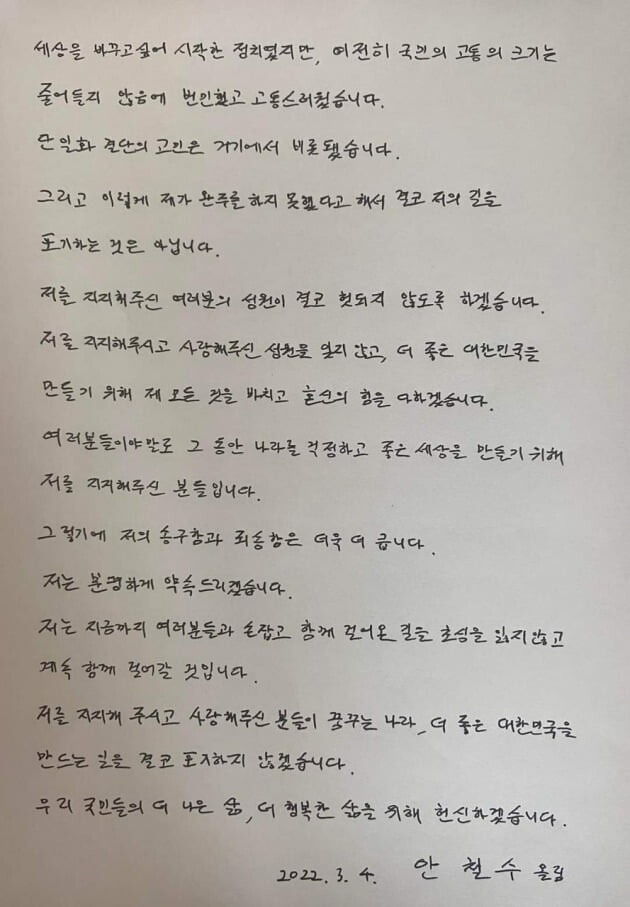 세상을 바꾸고싶어 시작한 정치였지만, 여전히 국민의 고통의 크기는
줄어들지 않음에 번민했고 고통스러웠습니다.
단일화 결단의 고민은 거기에서 비롯됐습니다.
그리고 이렇게 제가 완주를 하지 못했다고 해서 결코 저의 길을
포기하는 것은 아닙니다.
저를 지지해주신 여러분의 성원이 결코 헛되지 않도록 하겠습니다.
저를 지지해주시고 사랑해주신 성원을 잊지 않고, 더 좋은 대한민국을
만들기 위해 제 모든 것을 바치고 혼신의 힘을 다하겠습니다.
여러분들이야말로 그 동안 나라를 걱정하고 좋은 세상을 만들기 위해
저를 지지해주신 분들입니다.
그렇기에 저의 송구함과 죄송함은 더욱 더 큽니다.
저는 분명하게 약속드리겠습니다.
저는 지금까지 여러분들과 손잡고 함께 걸어온 길을 초심을 잃지 않고
계속 함께 걸어갈 것입니다.
저를 지지해 주시고 사랑해주신 분들이 꿈꾸는 나라, 더 좋은 대한민국을
만드는 일을 결코 포기하지 않겠습니다.
우리 국민들의 더 나은 삶, 더 행복한 삶을 위해 헌신하겠습니다.
2022. 3. 4. 안철수 올림